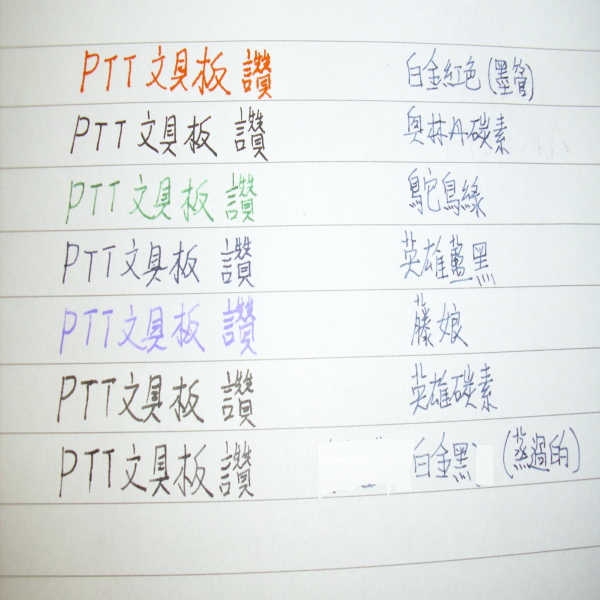 PTT 文具板 讚 白金紅色(墨管)
PTT 文具板 讚 奥林丹碳素
PTT 文具板 讚 鴕鳥綠
PTT 文具板 讚 英雄藍黑
PTT 文具板 讚 藤娘
PTT 文具板 讚 英雄碳素
PTT 文具板 讚 白金黑 (蒸過的)